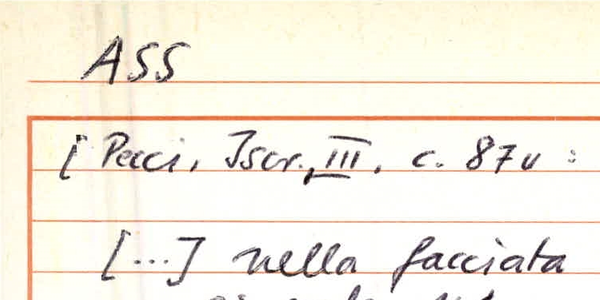 ASS
[ Pecci, Iscr., III, c. 87v :
[...] nella facciata